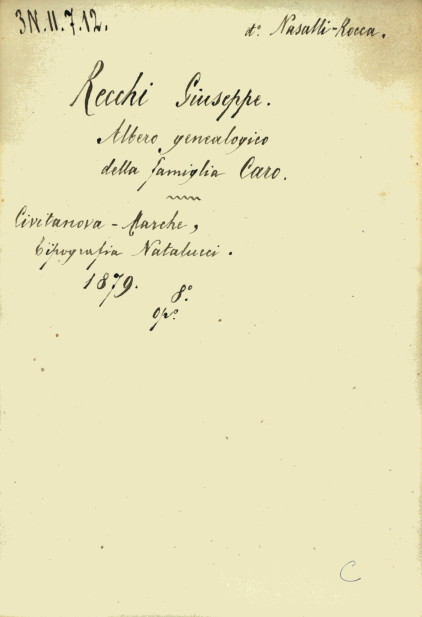 3N.II.7.12.
d.º Nasalli-Rocca.
Recchi Giuseppe.
Albero genealogico
della famiglia Caro.
Civitanova-Marche,
Tipografia Natalucci.
1879.
8.º
op.º
C